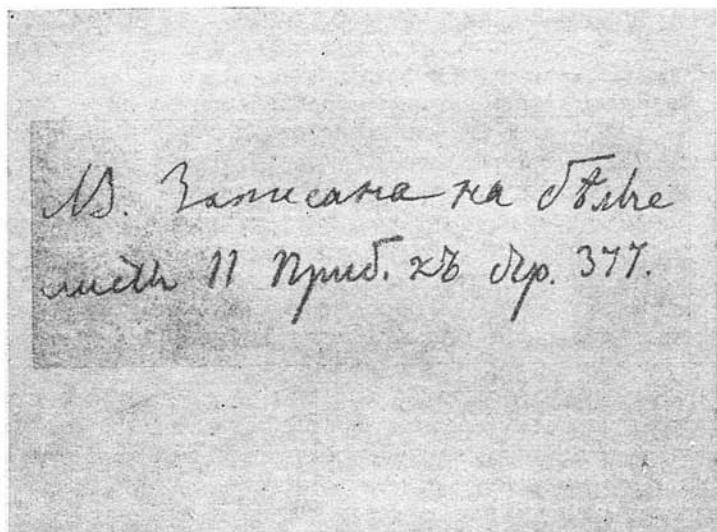 NB. Записана на бѣлѣе
листѣ II Приб. къ стр. 377.